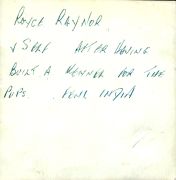 ROYCE RAYNOR
& SELF AFTER HAVING
BUILT A KENNEL FOR THE
PUPS. INDIA